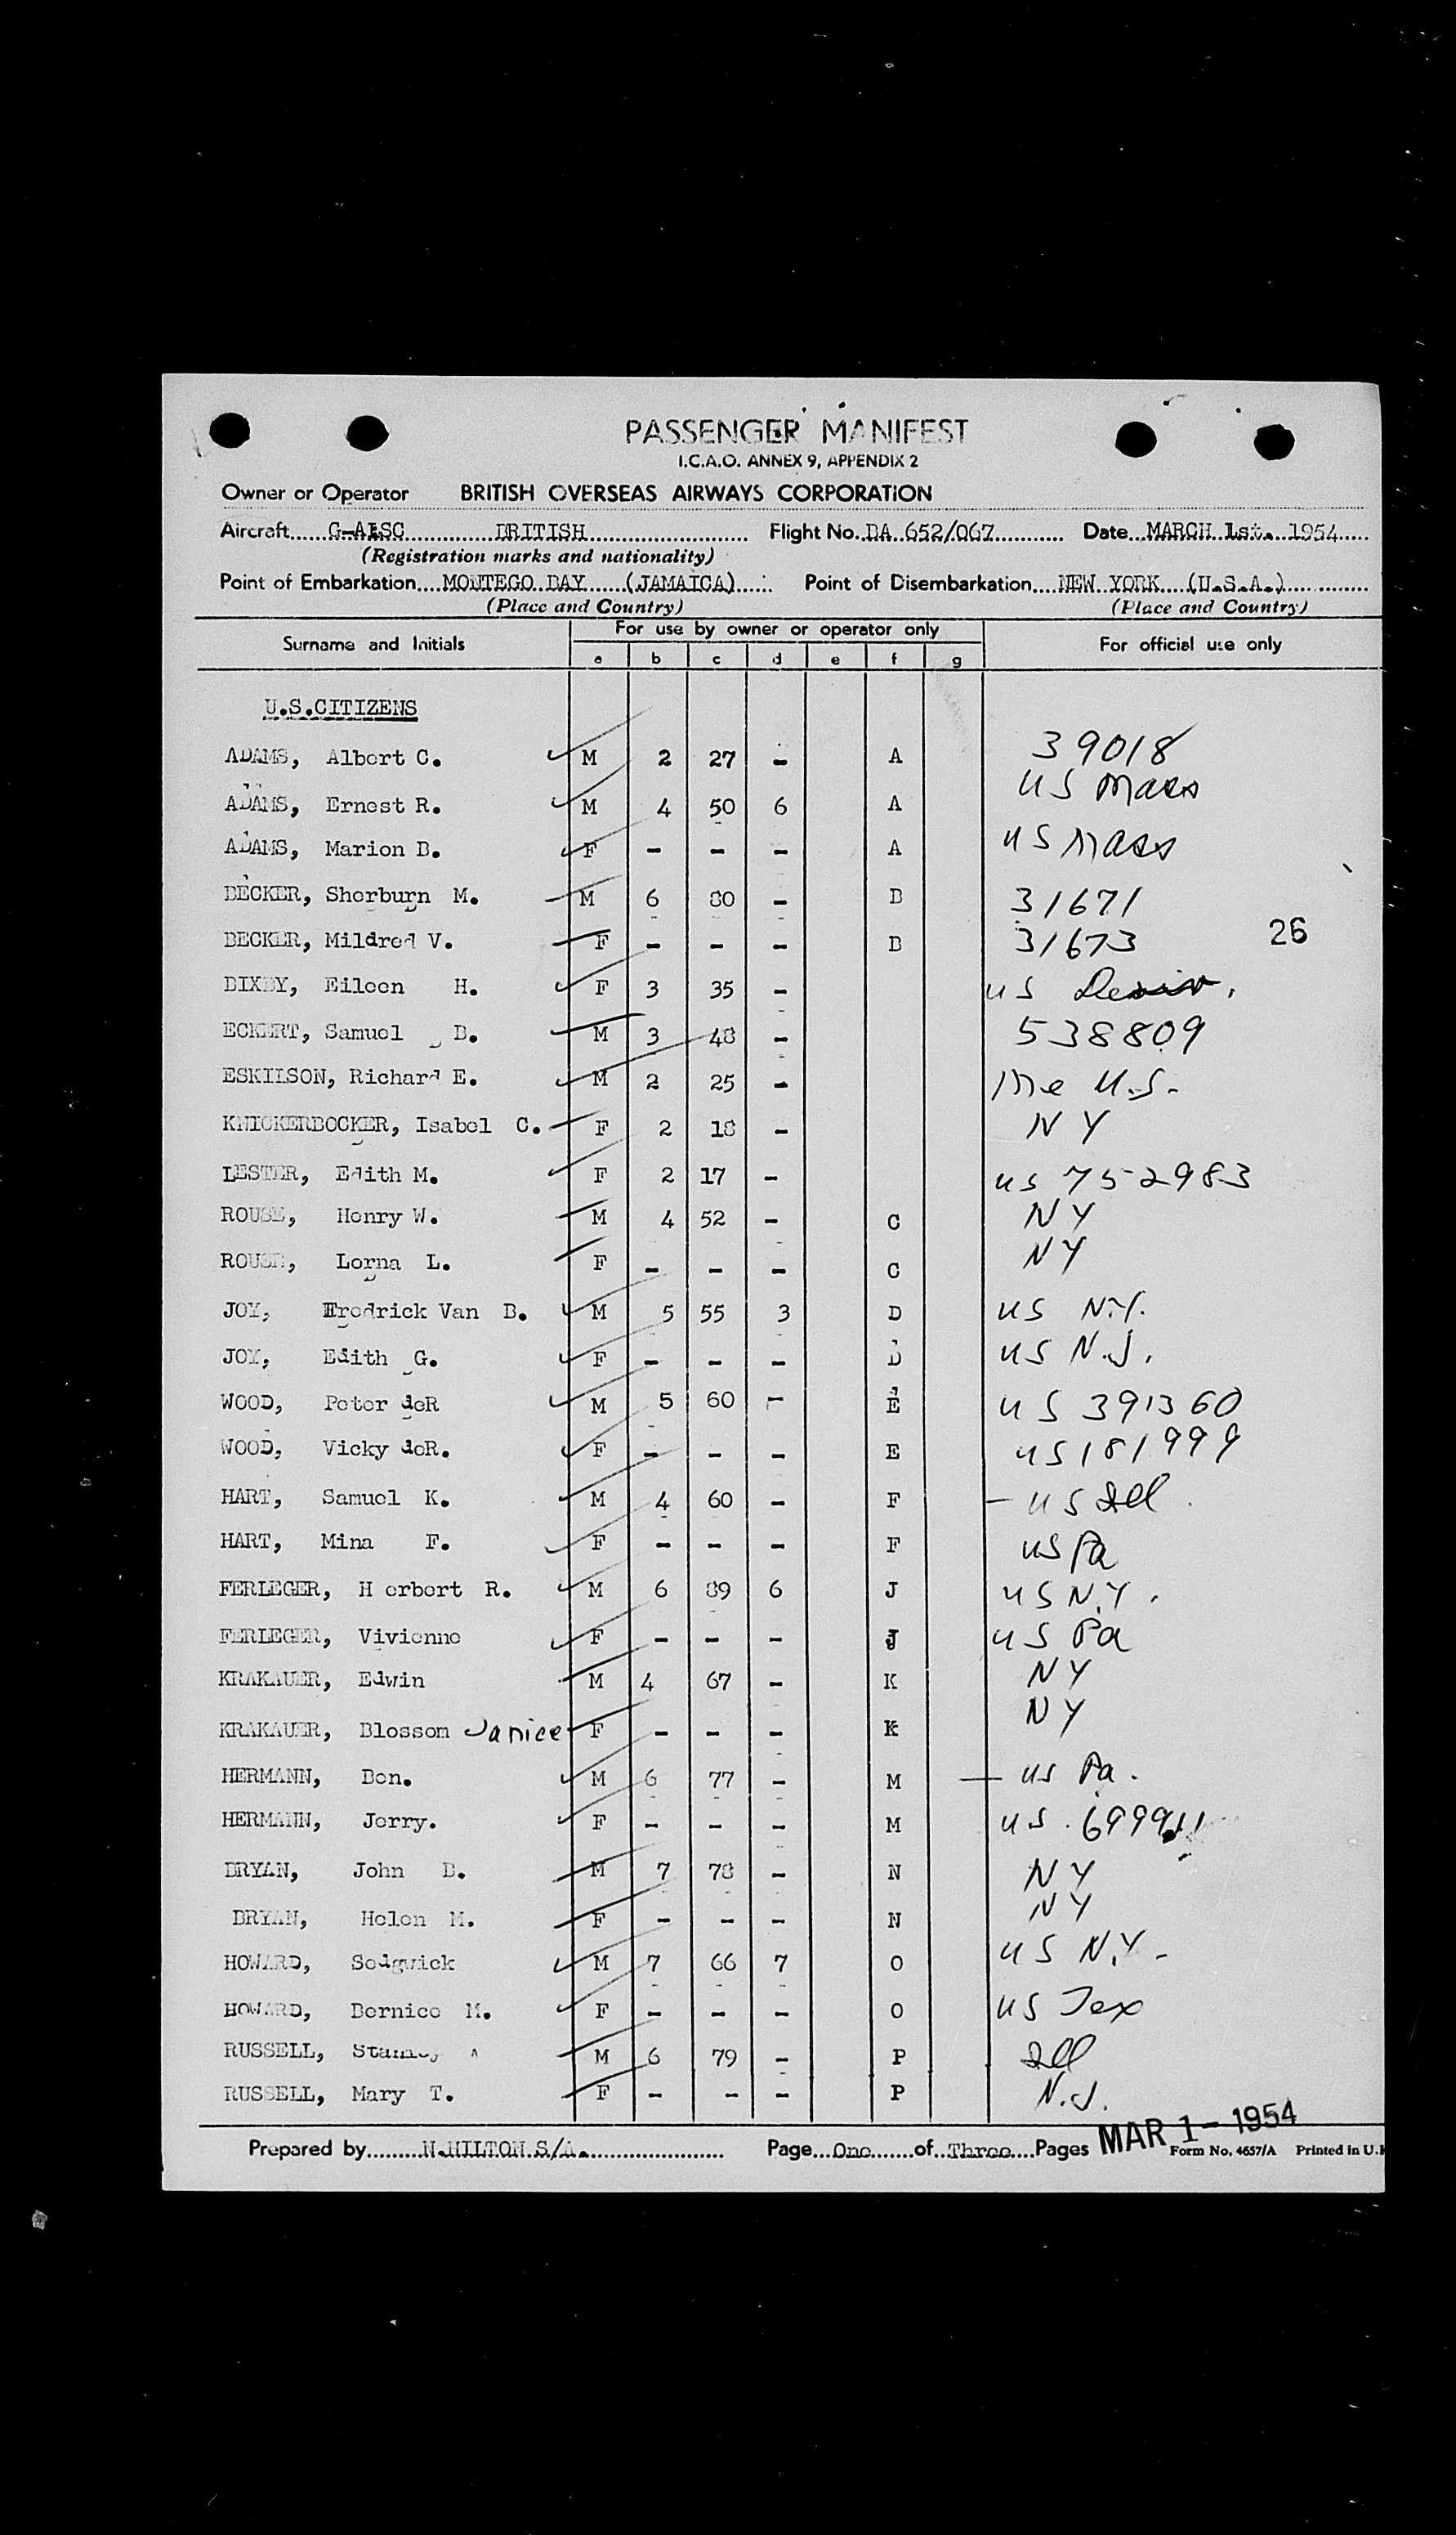 PASSENGER MANIFEST
I.C.A.O. ANNEX 9, APPENDIX 2
Owner or Operator BRITISH OVERSEAS AIRWAYS CORPORATION
Aircraft.....G-ALSC..............BRITISH.................... Flight No..BA..652/067............ Date...MARCH..1st...1954.....
(Registration marks and nationality)
Point of Embarkation....MONTEGO BAY.....(JAMAICA)...... Point of Disembarkation....NEW YORK...(U.S.A.)..............
(Place and Country) (Place and Country)
Surname and Initials For use by owner or operator only For official use only
a b c d e f g
U.S.CITIZENS
ADAMS, Albert C. M 2 27 - A 39018
ADAMS, Ernest R. M 4 50 6 A US Mass
ADAMS, Marion B. F - - - A US Mass
BECKER, Sherburn M. M 6 80 - B 31671
BECKER, Mildred V. F - - - B 31673 26
DIXEY, Eileen H. F 3 35 - US
ECKERT, Samuel B. M 3 48 - 538809
ESKILSON, Richard E. M 2 25 - Me U.S.
KNICKERBOCKER, Isabel C. F 2 18 - NY
LESTER, Edith M. F 2 17 - US 752983
ROUSE, Henry W. M 4 52 - C NY
ROUSE, Lorna L. F - - - C NY
JOY, Fredrick Van B. M 5 55 3 D US N.Y.
JOY, Edith G. F - - - D US N.J.
WOOD, Peter deR M 5 60 - E US 391360
WOOD, Vicky deR. F - - - E US 181999
HART, Samuel K. M 4 60 - F - US Ill.
HART, Mina F. F - - - F US Pa
FERLEGER, H erbert R. M 6 89 6 J US N.Y.
FERLEGER, Vivienne F - - - J US Pa
KRAKAUER, Edwin M 4 67 - K NY
KRAKAUER, Blossom Janice F - - - K NY
HERMANN, Ben. M 6 77 - M - US Pa.
HERMANN, Jerry. F - - - M U.S. 699911
BRYAN, John B. M 7 78 - N NY
BRYAN, Helen M. F - - - N NY
HOWARD, Sedgwick M 7 66 7 O US N.Y.-
HOWARD, Bernice M. F - - - O US Tex
RUSSELL, Stanley A M 6 79 - P Ill
RUSSELL, Mary T. F - - - P N.J.
MAR 1 - 1954
Prepared by.........N.HILTON S/A....................... Page...One.......of..Three....Pages Form No. 4657/A Printed in U.K